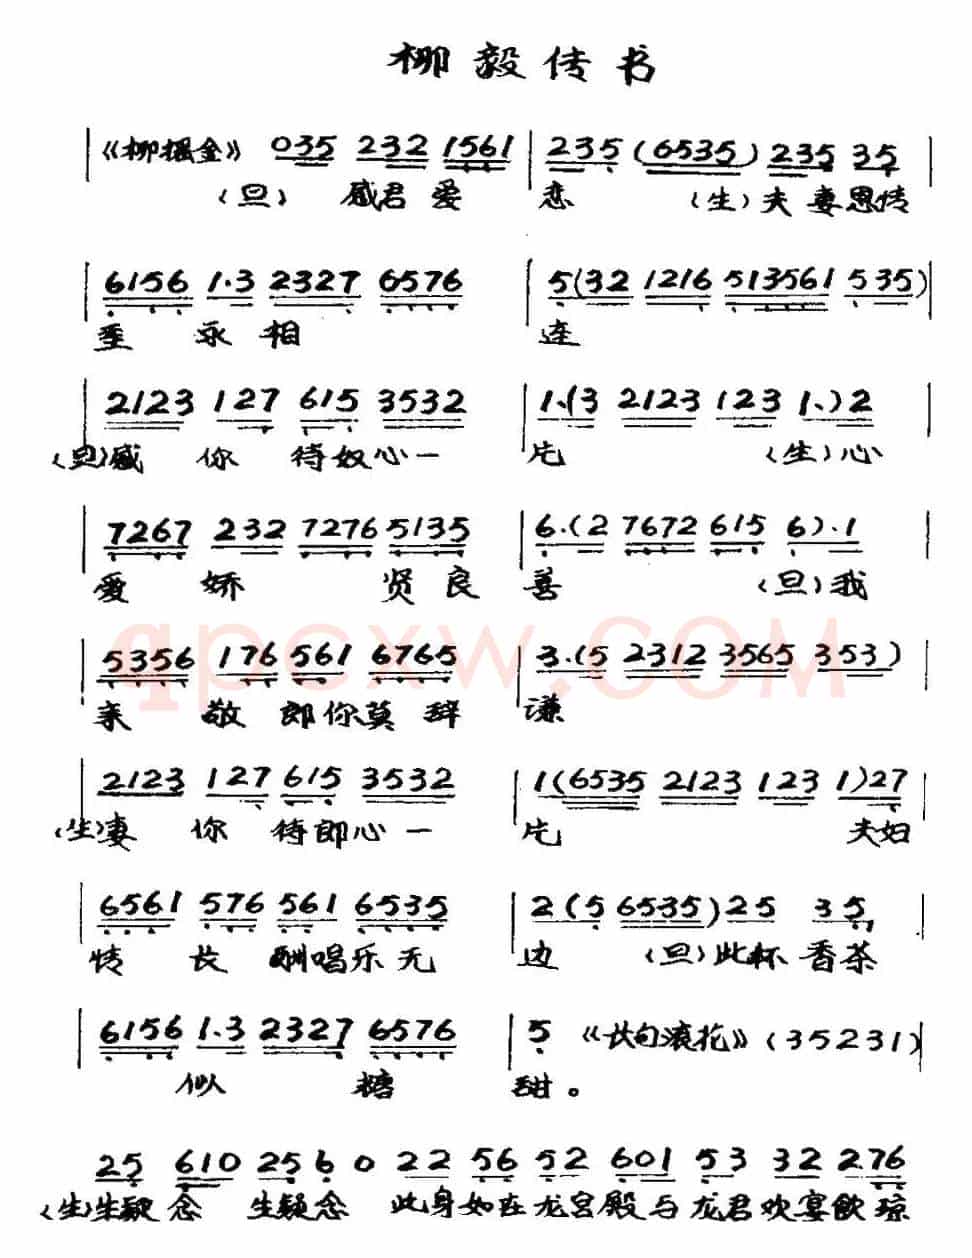 柳毅传书
《柳摇金》 035 232 1561 | 235 (6535) 235 35 |
(旦) 感君爱恋 (生) 夫妻恩情
| 6156 1·3 2327 6576 | 5(32 1216 513561 535) |
至永相连
| 2123 127 615 3532 | 1·(3 2123 123 1·)2 |
(旦)感你待奴心一片 (生)心
| 7267 232 7276 5135 | 6·(2 7672 615 6)·1 |
爱娇贤良善 (旦)我
qpcxw.COM
| 5356 176 561 6765 | 3·(5 2312 3565 353) |
亲敬郎你莫辞谦
| 2123 127 615 3532 | 1(6535 2123 123 1)27 |
(生)妻你待郎心一片 夫妇
| 6561 576 561 6535 | 2(5 6535)25 35, |
情长酬唱乐无边 (旦)此杯香茶
| 6156 1·3 2327 6576 | 5 《长句滚花》(35231) |
似糖甜。
25 610 25 6 0 22 56 52 601 53 32 2·76
(生)生疑念 生疑念 此身如在龙宫殿与龙君欢宴飲琼